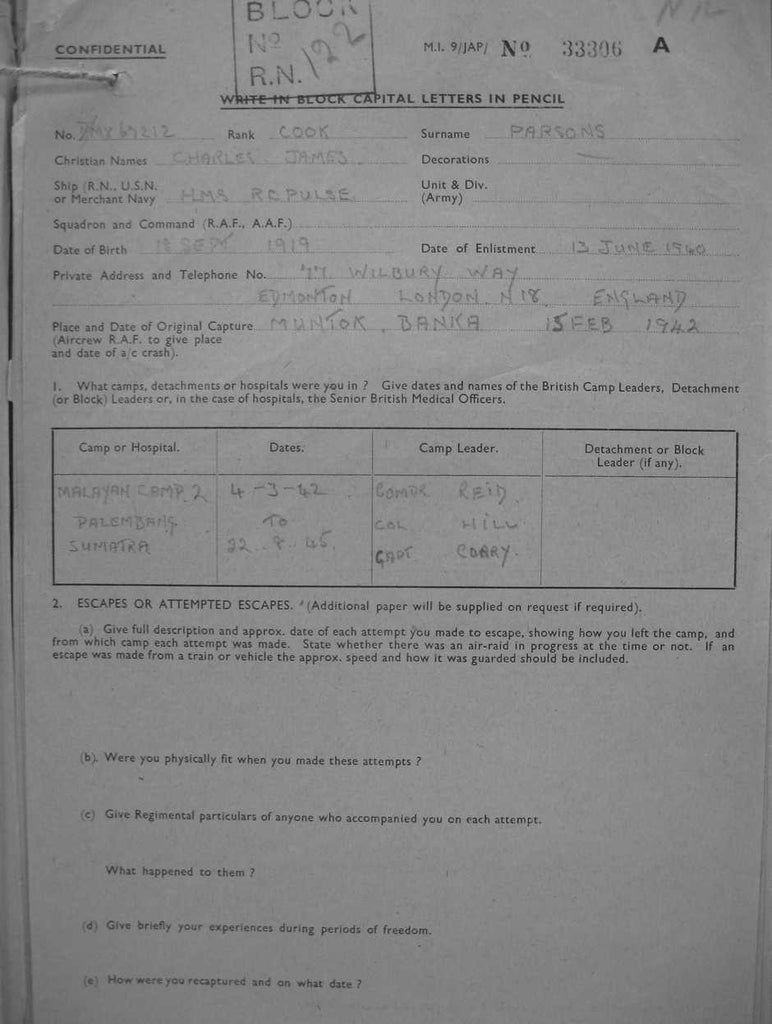 BLOCK
No 122
R.N.
NIL
CONFIDENTIAL
M.I. 9/JAP/ No 33306 A
WRITE IN BLOCK CAPITAL LETTERS IN PENCIL
No. Rank COOK Surname PARSONS
Christian Names CHARLES JAMES Decorations —
Ship (R.N., U.S.N. or Merchant Navy HMS REPULSE Unit & Div. (Army)
Squadron and Command (R.A.F., A.A.F.)
Date of Birth 18 SEPT 1919 Date of Enlistment 13 JUNE 1940
Private Address and Telephone No. 77 WILBURY WAY
EDMONTON LONDON N 18 ENGLAND
Place and Date of Original Capture MUNTOK, BANKA 15 FEB 1942
(Aircrew R.A.F. to give place
and date of a/c crash).
1. What camps, detachments or hospitals were you in ? Give dates and names of the British Camp Leaders, Detachment
(or Block) Leaders or, in the case of hospitals, the Senior British Medical Officers.
Camp or Hospital. Dates. Camp Leader. Detachment or Block Leader (if any).
MALAYAN CAMP 2 4-3-42 COMDR REID
PALEMBANG TO COL HILL
SUMATRA 22.8.45. CAPT CORRY.
2. ESCAPES OR ATTEMPTED ESCAPES. (Additional paper will be supplied on request if required).
(a) Give full description and approx. date of each attempt you made to escape, showing how you left the camp, and
from which camp each attempt was made. State whether there was an air-raid in progress at the time or not. If an
escape was made from a train or vehicle the approx. speed and how it was guarded should be included.
(b). Were you physically fit when you made these attempts ?
(c) Give Regimental particulars of anyone who accompanied you on each attempt.
What happened to them ?
(d) Give briefly your experiences during periods of freedom.
(e) How were you recaptured and on what date ?